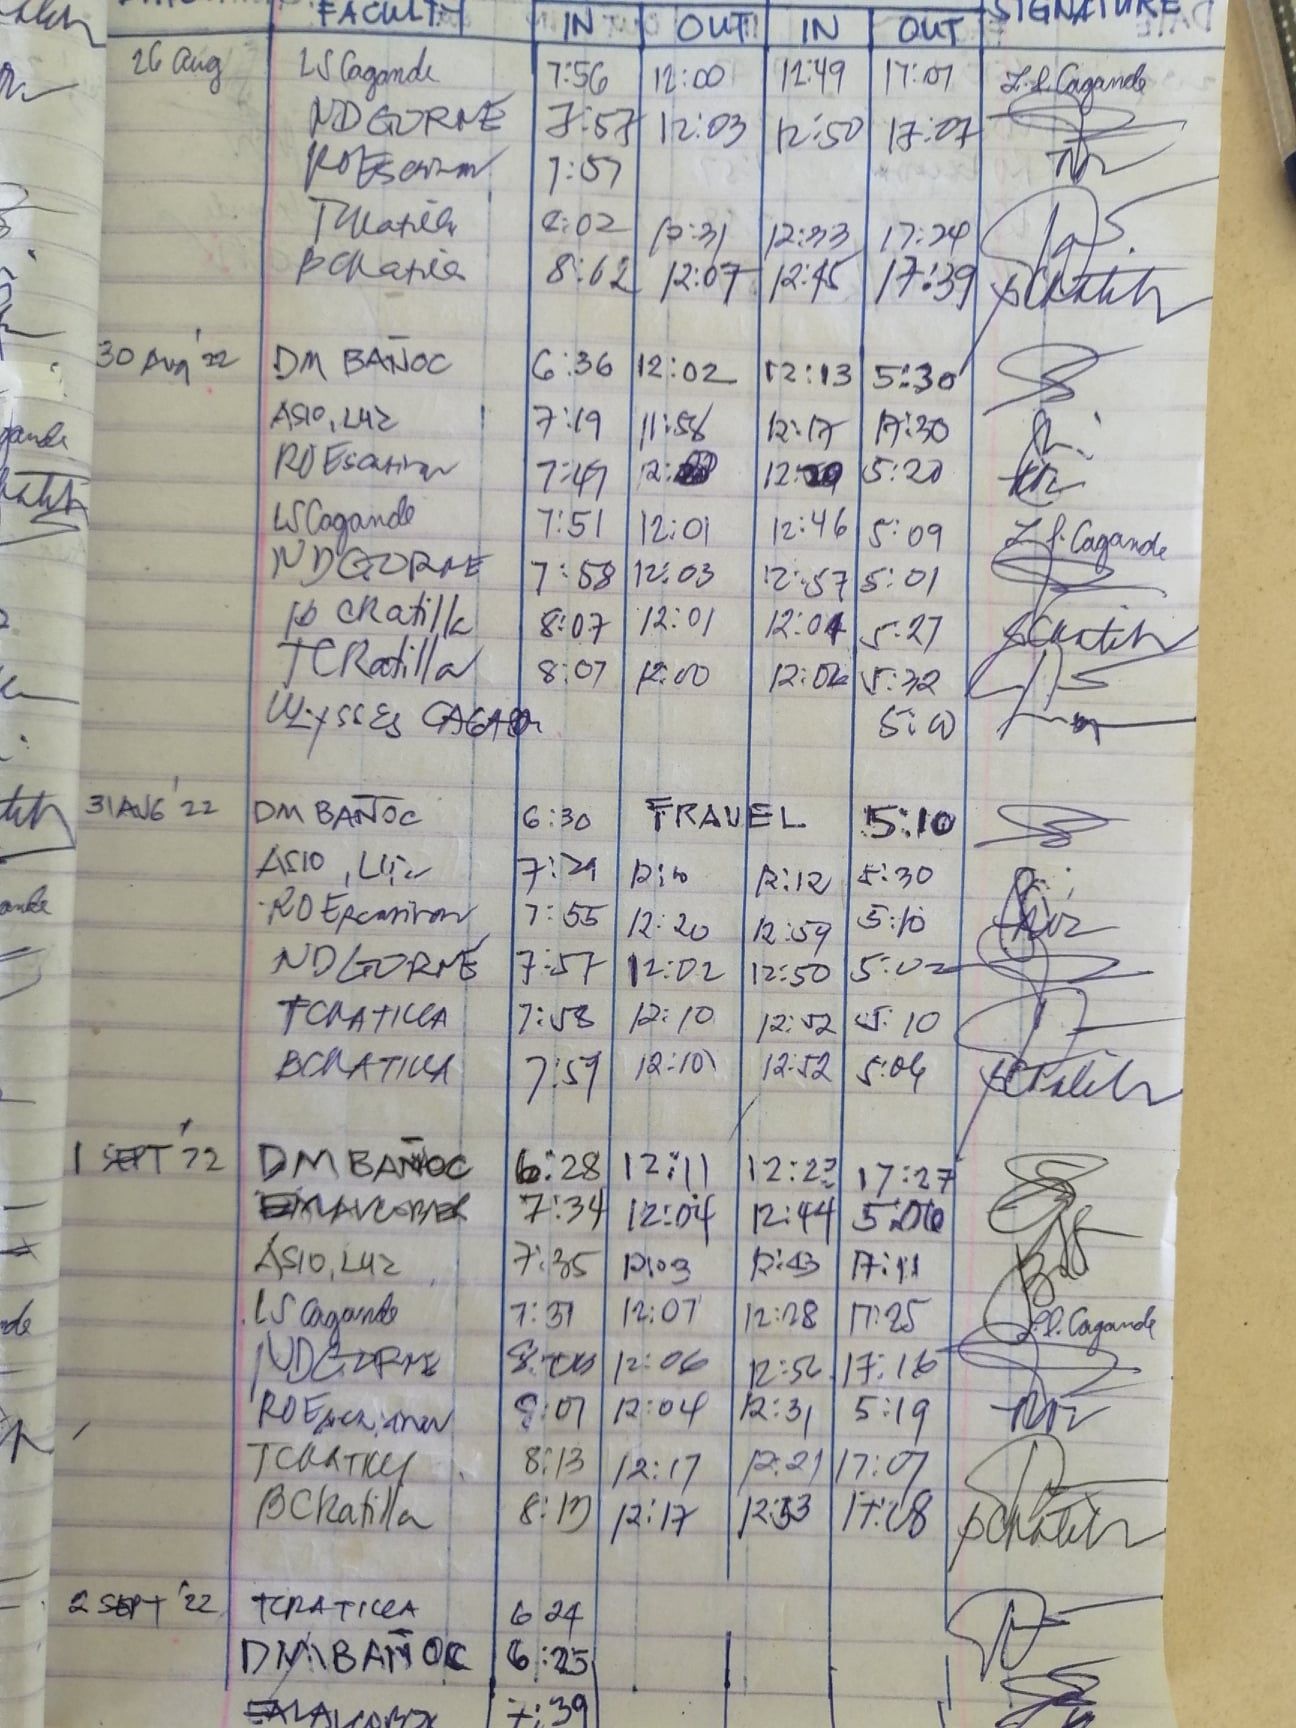 FACULTY IN OUT IN OUT SIGNATURE
26 Aug LS Cagande 7:56 12:00 12:49 17:07 L.S. Cagande
ND GORNE 7:57 12:03 12:50 17:07
RO 7:57
TCRatilla 8:02 12:31 12:33 17:24
BCRatilla 8:02 12:07 12:45 17:39
30 Aug '22 DM BAÑOC 6:36 12:02 12:13 5:30
ASIO, Luz 7:19 11:58 12:17 17:30
RO 7:47 5:20
LS Cagande 7:51 12:01 12:46 5:09 L.S. Cagande
ND GORNE 7:58 12:03 12:57 5:01
B CRatilla 8:07 12:01 12:04 5:27
TCRatilla 8:07 12:00 12:06 5:32
Ulysses
31 AUG '22 DM BAÑOC 6:30 TRAVEL 5:10
ASIO, Luz 12:12 5:30
RO 7:55 12:20 12:59 5:10
ND GORNE 7:57 12:02 12:50 5:02
TCRATILLA 7:58 12:10 12:52 5:10
BCRATILLA 7:59 12:10 12:52 5:06
1 SEPT '22 DM BAÑOC 6:28 12:11 12:22 17:27
7:34 12:04 12:44
ASIO, Luz 7:35 12:03 12:43 17:11
LS Cagande 7:37 12:07 12:28 17:25 L.S. Cagande
ND GORNE 12:06 12:56 17:16
RO 8:07 12:04 12:31 5:19
TCRATILLA 8:13 12:17 12:21 17:07
BCRatilla 8:13 12:17 12:33 17:08
2 SEPT '22 TCRATILLA 6 24
DM BAÑOC 6:25
7:39